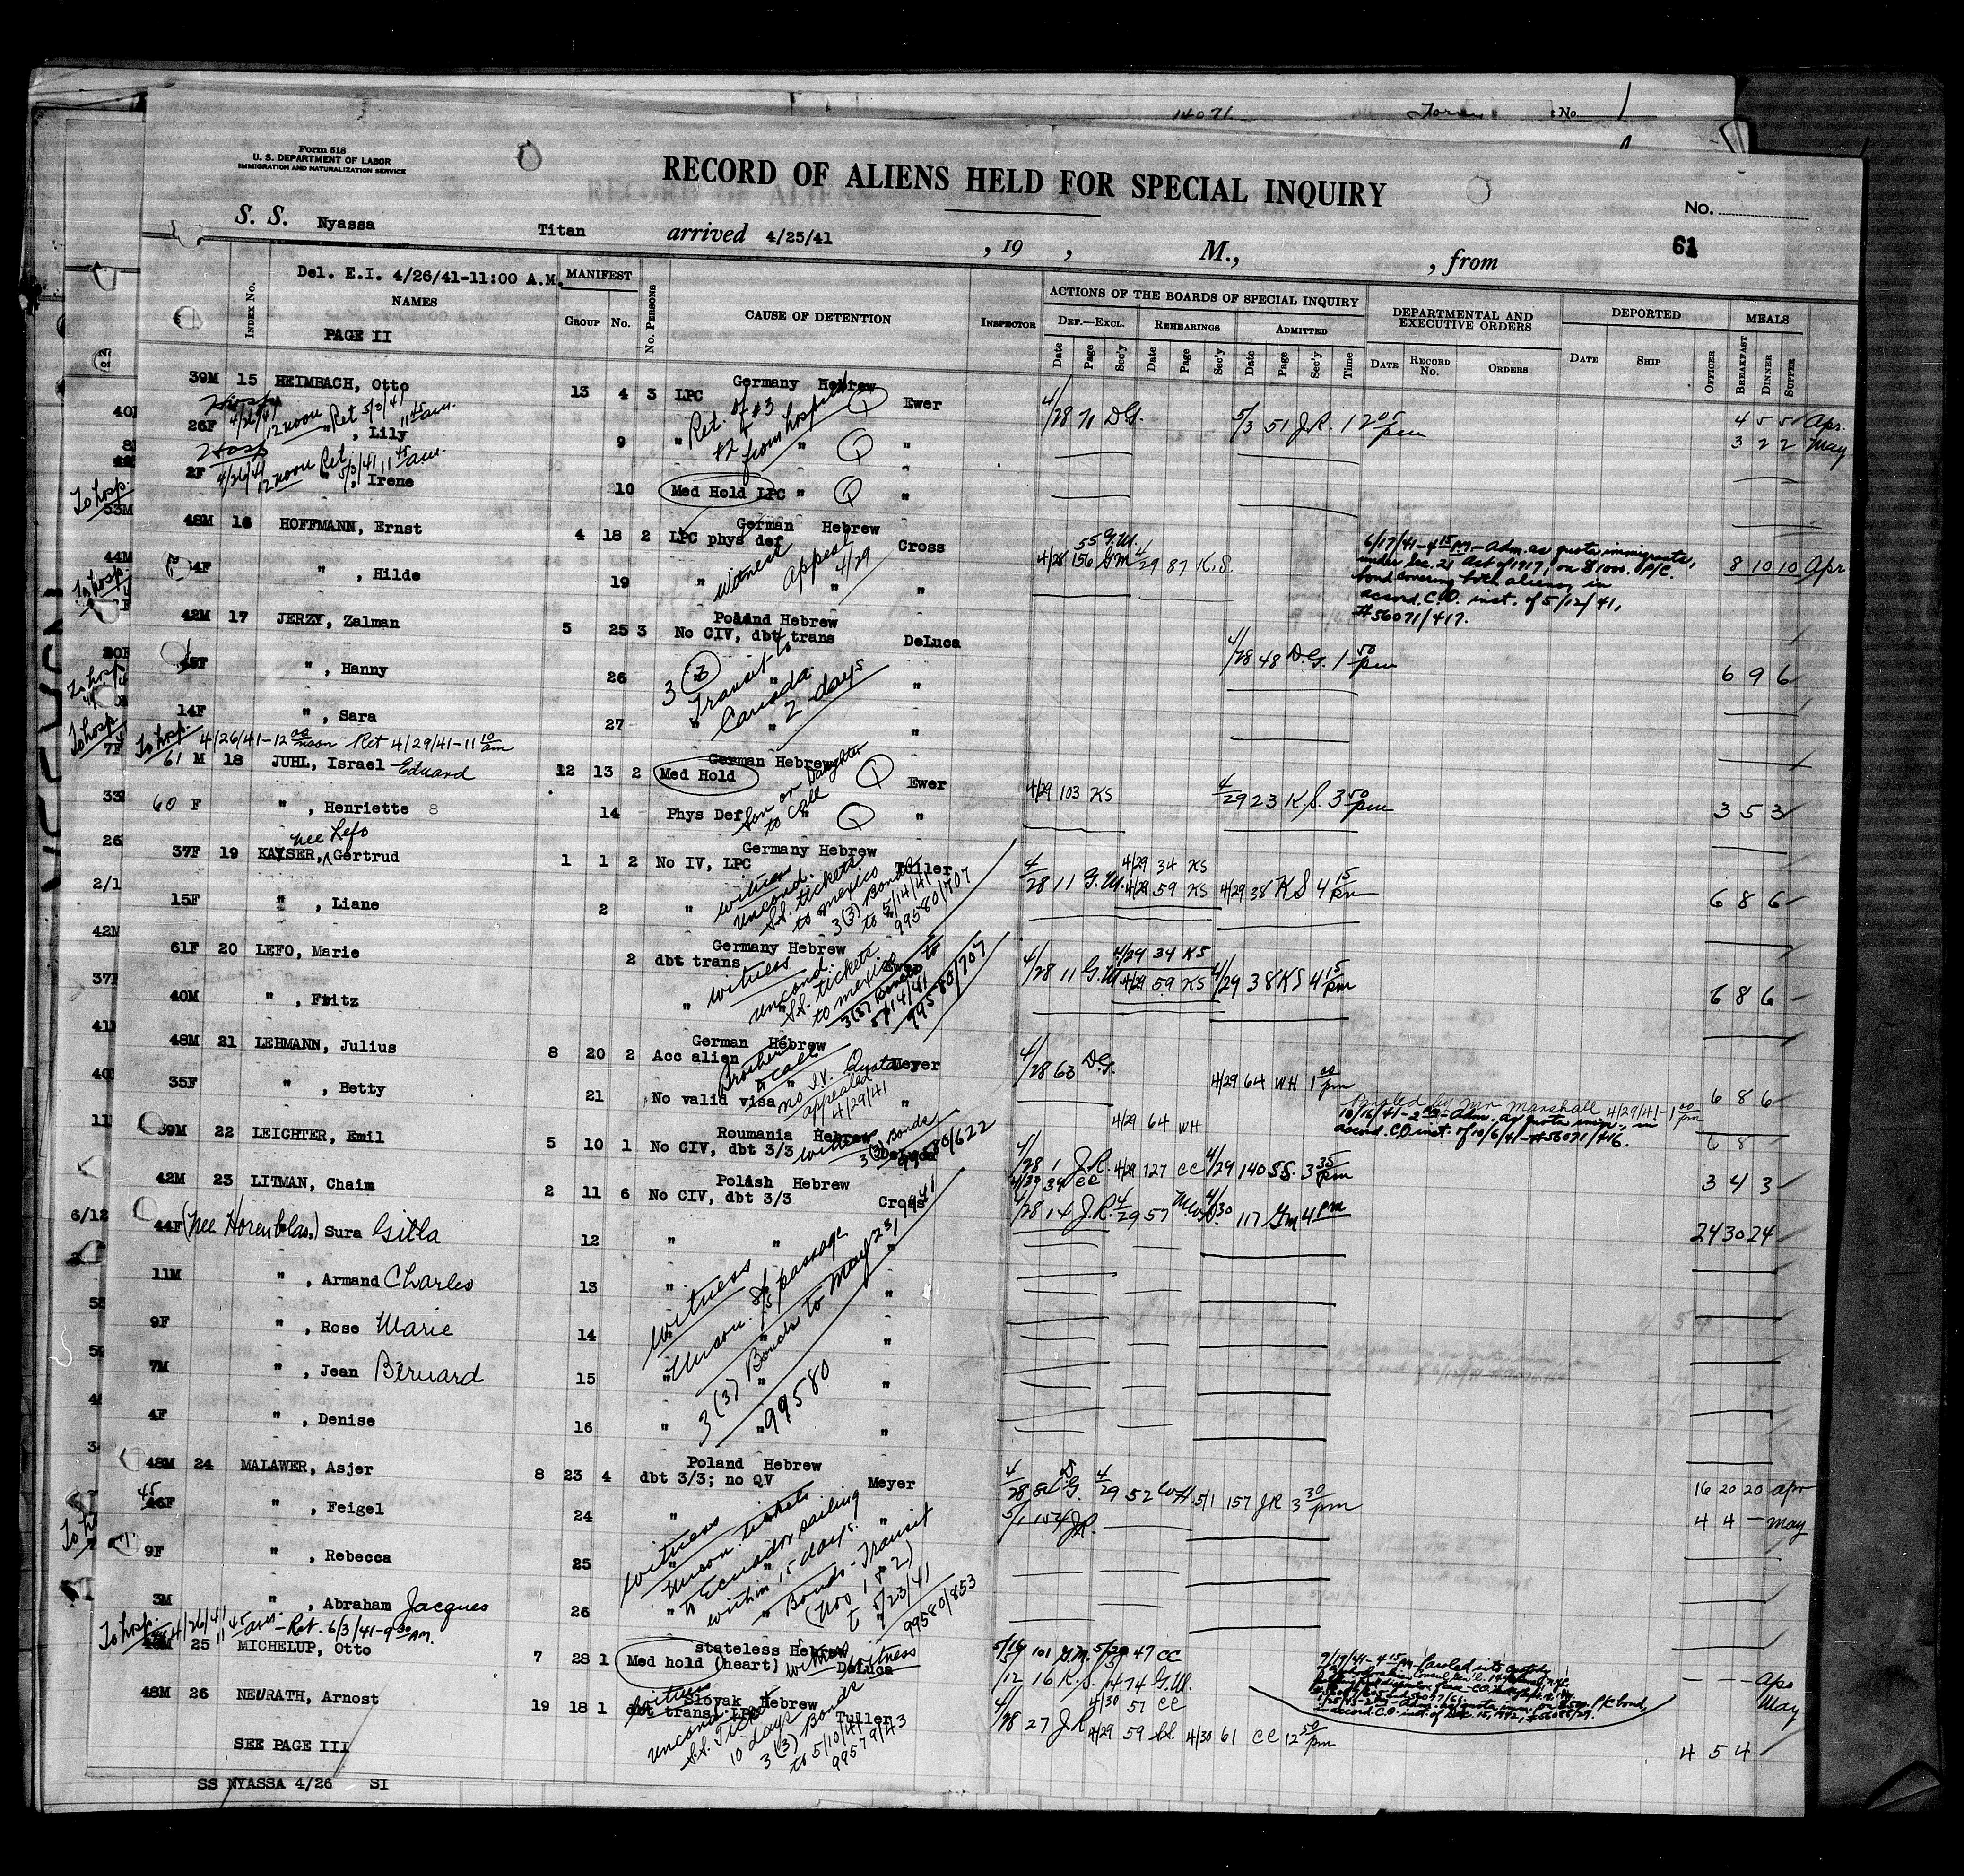 14071
No.
Form 518
U. S. DEPARTMENT OF LABOR
IMMIGRATION AND NATURALIZATION SERVICE
RECORD OF ALIENS HELD FOR SPECIAL INQUIRY
No.
61
S. S. Nyassa Titan arrived 4/25/41 , 19 , M., , from
Del. E.I. 4/26/41-11:00 A.M.
INDEX No. NAMES MANIFEST GROUP No. No. PERSONS CAUSE OF DETENTION INSPECTOR
ACTIONS OF THE BOARDS OF SPECIAL INQUIRY
DEF.—EXCL. REHEARINGS ADMITTED
Date Page Sec'y Date Page Sec'y Date Page Sec'y Time
DEPARTMENTAL AND EXECUTIVE ORDERS
DATE RECORD No. ORDERS
DEPORTED
DATE SHIP
MEALS
OFFICER BREAKFAST DINNER SUPPER
PAGE II
Germany Hebrew
39M 15 HEIMBACH, Otto 13 4 3 LPC Q Ewer 4/28 71 D.G. 5/3 51 J.R. 1 05 pm 4 5 5 Apr.
Hosp 4/26/41 12 noon Ret 5/3/41 11 45 am.
Ret. of #3 from hospital
26F " , Lily 9 " " Q " 3 2 2 May
Hosp 4/26/41 12 noon Ret. 5/3/41 11 45 am.
2F " , Irene 10 Med Hold LPC " Q "
To hosp.
53M
German Hebrew
48M 16 HOFFMANN, Ernst 4 18 2 LPC phys def Cross 4/28 156 GM 4/29 87 K.S. 8 10 10 Apr
55 G.M.
witness appeal 4/29
6/17/41-4 15 PM-Adm. as quota immigrants,
under Sec. 21 Act of 1917, on $1000. P/C.
bond covering both aliens, in
accord. C.O. inst. of 5/12/41,
#56071/417.
44M
4F " , Hilde 19 " " "
To hosp.
Poland Hebrew
42M 17 JERZY, Zalman 5 25 3 No CIV, dbt trans DeLuca 4/28 48 D.G. 1 50 pm
3 (3) Transit to Canada 2 days
" , Hanny 26 " " 6 9 6
14F " , Sara 27 " " "
To hosp. 4/26/41-12 00 noon Ret 4/29/41-11 10 am
German Hebrew
61 M 18 JUHL, Israel Eduard 12 13 2 Med Hold Q Ewer 4/29 103 KS 4/29 23 K.S. 3 50 pm 3 5 3
Son or Daughter to call
60 F " , Henriette 8 14 Phys Def " Q "
nee Lefo
Germany Hebrew
37F 19 KAYSER, Gertrud 1 1 2 No IV, LPC Tuller 4/28 11 G.M. 4/29 34 KS
4/29 59 KS 4/29 38 KS 4 15 pm 6 8 6
witness uncond. S.S. tickets to mexico 3(3) Bonds to 5/14/41 99580/707
15F " , Liane 2 "
Germany Hebrew
61F 20 LEFO, Marie 2 dbt trans Ewer 4/28 11 G.M. 4/29 34 KS
4/29 59 KS 4/29 38 KS 4 15 pm 6 8 6
witness uncond. S.S. tickets to mexico 3(3) Bonds to 5/14/41 99580/707
40M " , Fritz "
German Hebrew
48M 21 LEHMANN, Julius 8 20 2 Acc alien Meyer 4/28 63 D.G. 4/29 64 WH 1 00 pm 6 8 6
Brother to call
35F " , Betty 21 No valid visa " 4/29 64 WH 6 8
no I.V. Quota appealed 4/29/41
Paroled by Mr Marshall 4/29/41-1 00 pm
10/16/41-2 PM-Adm. as quota imm., in
accord. C.O. inst. of 10/6/41-#56071/416.
Roumania Hebrew
39M 22 LEICHTER, Emil 5 10 1 No CIV, dbt 3/3 DeLuca 4/28 1 J.R. 4/29 127 CC 4/29 140 SS. 3 35 pm 3 4 3
witness 3(3) Bonds 99580/622
4/29 34 CC
Polish Hebrew
42M 23 LITMAN, Chaim 2 11 6 No CIV, dbt 3/3 Cross 4/28 14 J.R. 4/29 57 4/30 117 GM 4 pm 24 30 24
44F (nee Horenblas.) Sura Gitla 12 " " "
11M " , Armand Charles 13 " "
9F " , Rose Marie 14 " "
7M " , Jean Bernard 15 " " "
4F " , Denise 16 " " "
witness S/S passage 3(3) Bonds to May 23/1941 99580
Poland Hebrew
48M 24 MALAWER, Asjer 8 23 4 dbt 3/3; no QV Meyer 4/28 82 D.G. 4/29 52 W.H. 5/1 157 JR 3 30 pm 16 20 20 apr
45
46F " , Feigel 24 " " 5/1 154 J.R. 4 4 - may
9F " , Rebecca 25 " "
3M " , Abraham Jacques 26 " "
witness uncon. tickets to Ecuador sailing within 15 days. Bonds-Transit (Nos 1 & 2) to 5/23/41 99580/853
To hosp. 4/26/41 11 45 am. - Ret. 6/3/41-9 30 AM.
stateless Hebrew
25 MICHELUP, Otto 7 28 1 Med hold (heart) witness DeLuca 5/19 101 G.M. 5/29 47 CC — — Apr
5/12 16 K.S. 74 G.M. May
Slovak Hebrew
48M 26 NEURATH, Arnost 19 18 1 dbt trans, LPC Tuller 4/28 27 J.R. 4/29 59 4/30 61 CC 12 50 pm 4 5 4
4/30 57 CC
witness uncond. S.S. Ticket 10 days 3(3) Bonds to 5/10/41 99579/943
SEE PAGE III
SS NYASSA 4/26 SI